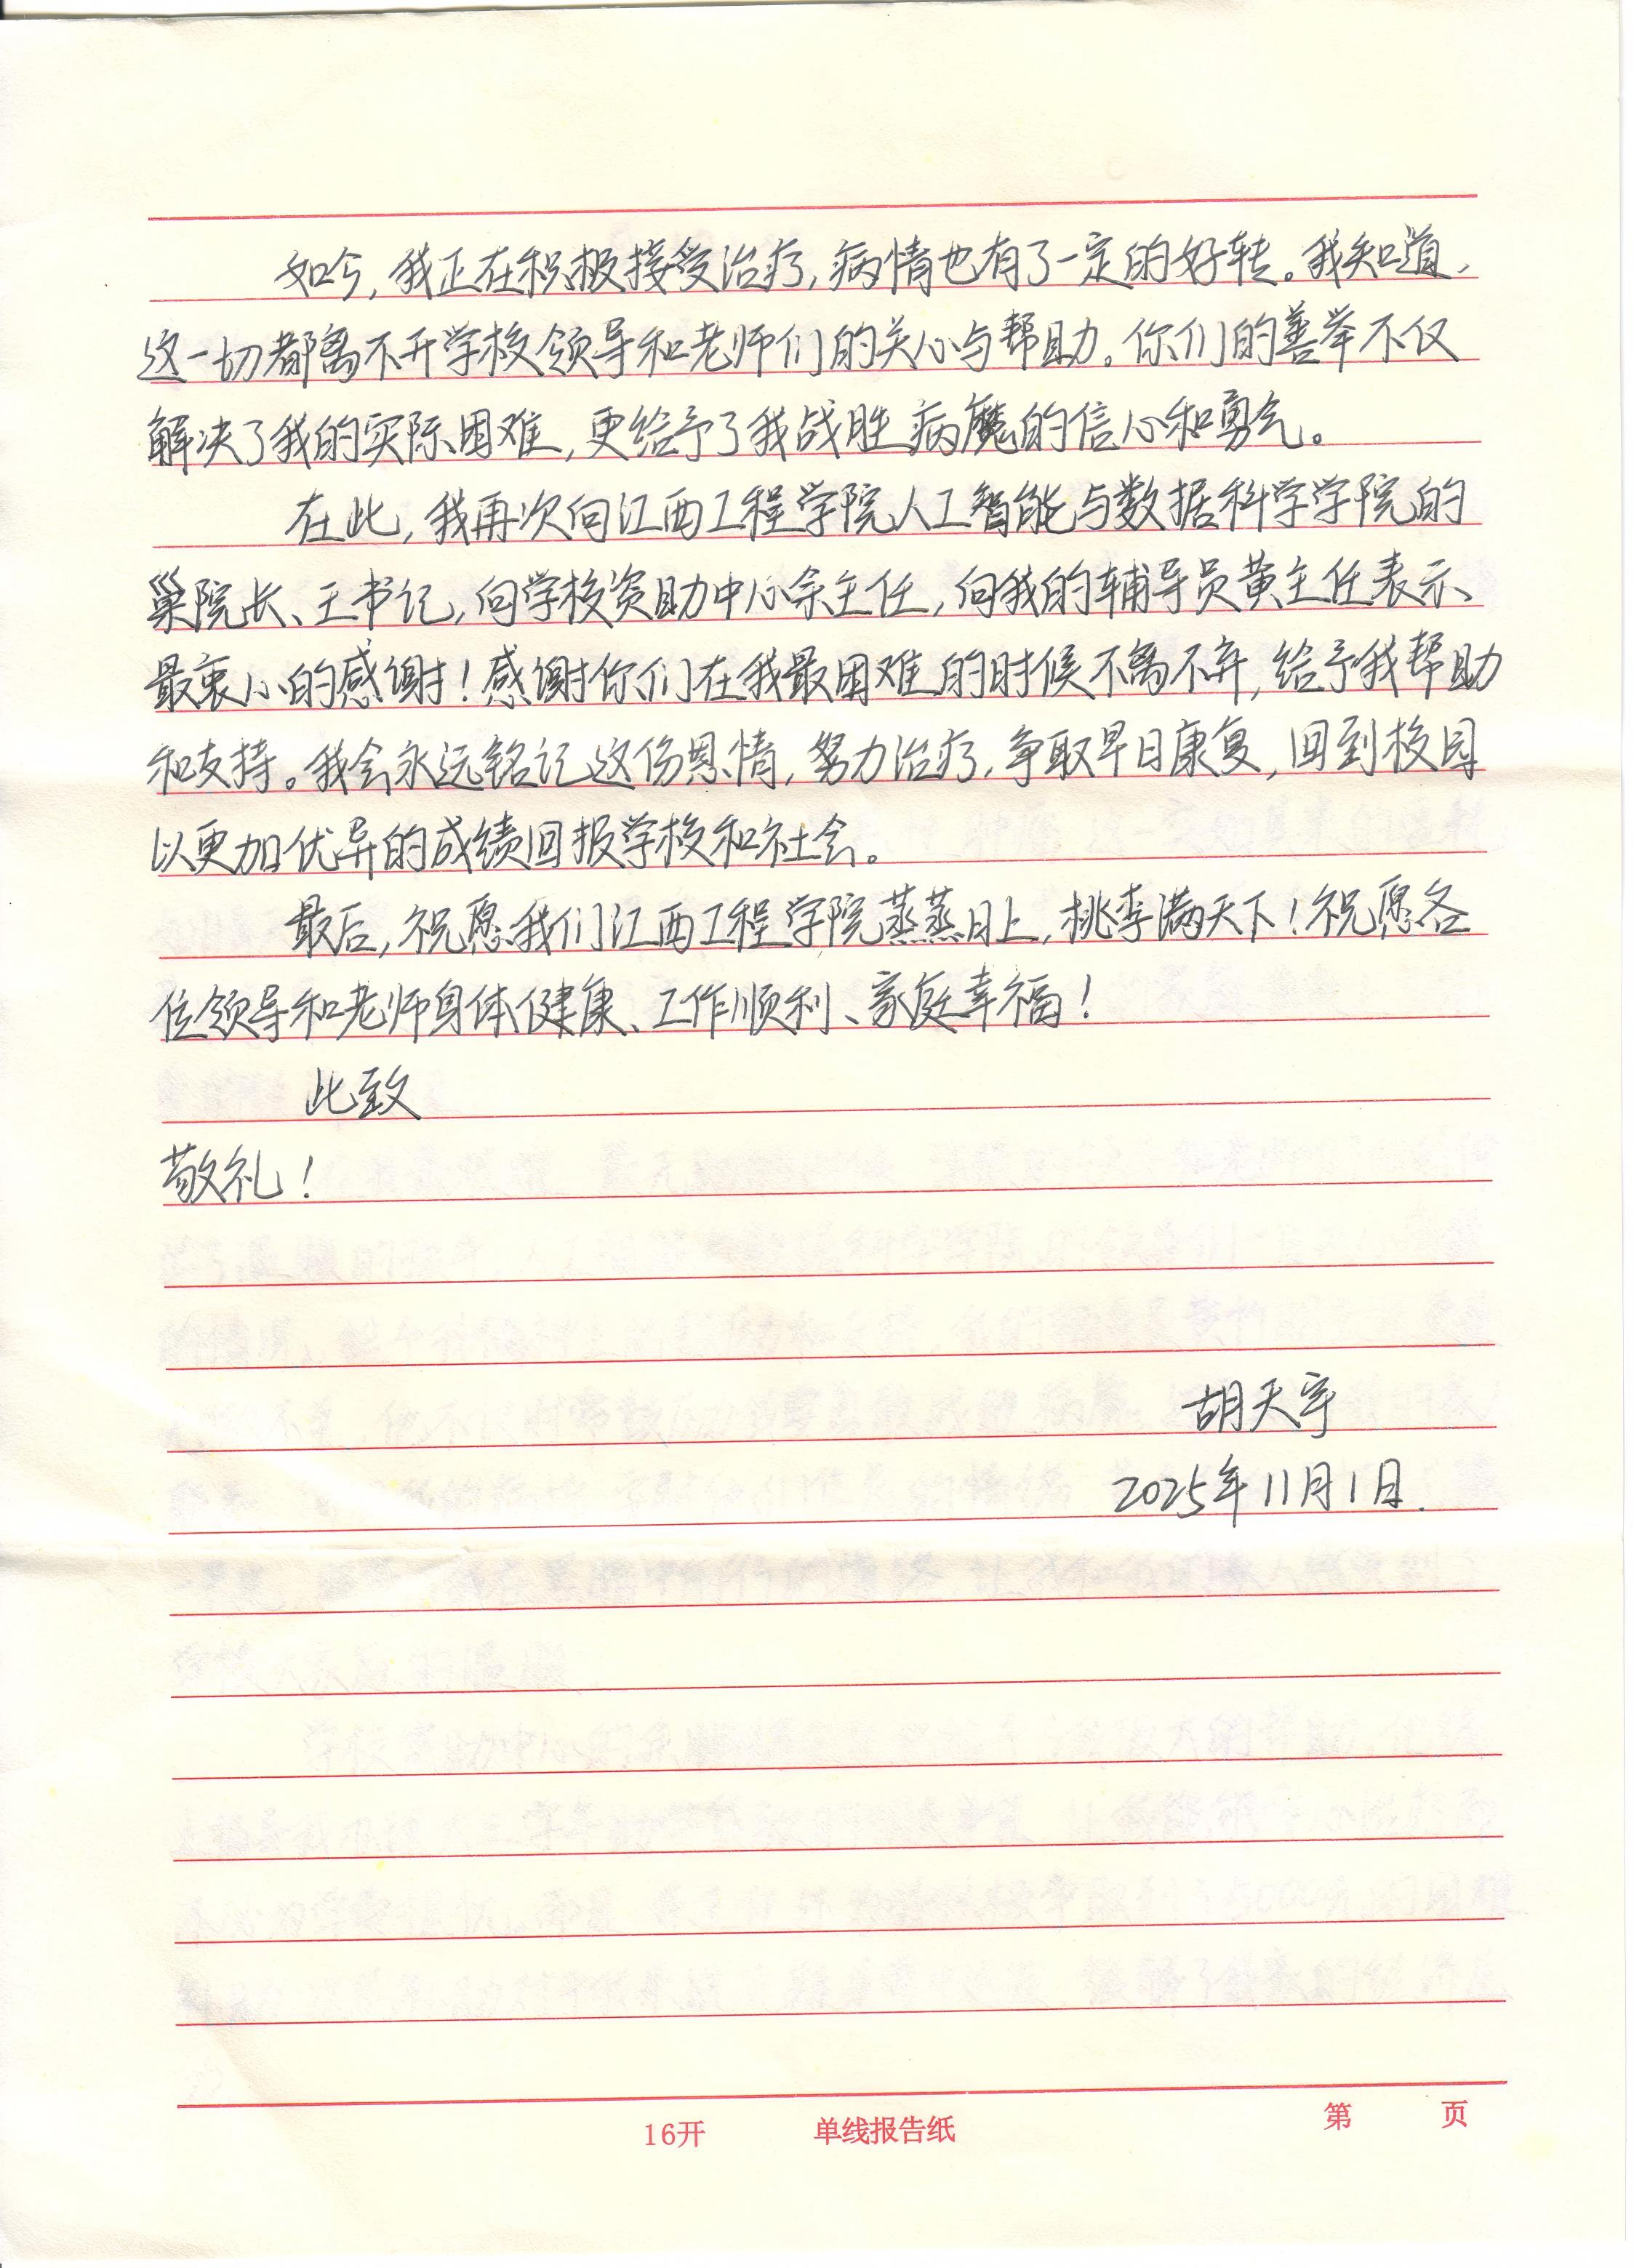 如今,我正在积极接受治疗,病情也有了一定的好转。我知道,
这一切都离不开学校领导和老师们的关心与帮助。你们的善举不仅
解决了我的实际困难,更给予了我战胜病魔的信心和勇气。
在此,我再次向江西工程学院人工智能与数据科学学院的
巢院长、王书记,向学校资助中心余主任,向我的辅导员黄主任表示
最衷心的感谢!感谢你们在我最困难的时候不离不弃,给予我帮助
和支持。我会永远铭记这份恩情,努力治疗,争取早日康复,回到校园
以更加优异的成绩回报学校和社会。
最后,祝愿我们江西工程学院蒸蒸日上,桃李满天下!祝愿各
位领导和老师身体健康、工作顺利、家庭幸福!
此致
敬礼!
胡天宇
2025年11月1日.
16开 单线报告纸 第 页